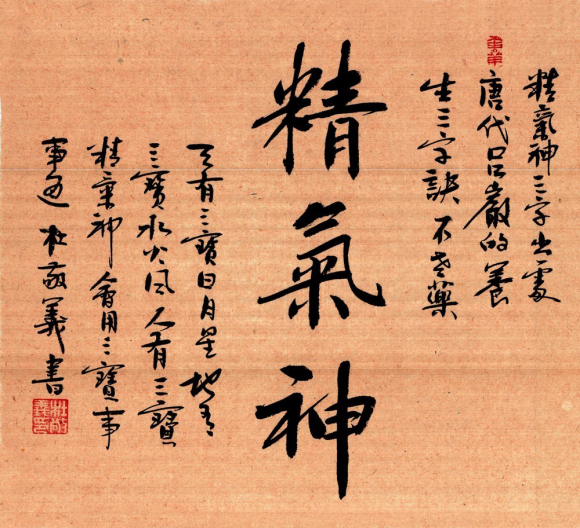 精氣神三字出處
唐代呂巖的養
生三字訣不老藥
精
氣
神
天有三寶日月星地有
三寶水火風人有三寶
精氣神會用三寶事
事通杜敬義書
杜敬
義印